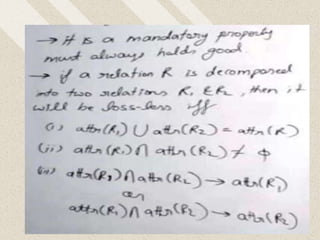 → it is a mandatory property
must always holds good.
→ if a relation R is decomposed
into two relations R₁ & R₂, then it
will be loss-less iff
(i) attr(R₁) ∪ attr(R₂) = attr(R)
(ii) attr(R₁) ∩ attr(R₂) ≠ ϕ
(iii) attr(R₁) ∩ attr(R₂) → attr(R₁)
or
attr(R₁) ∩ attr(R₂) → attr(R₂)